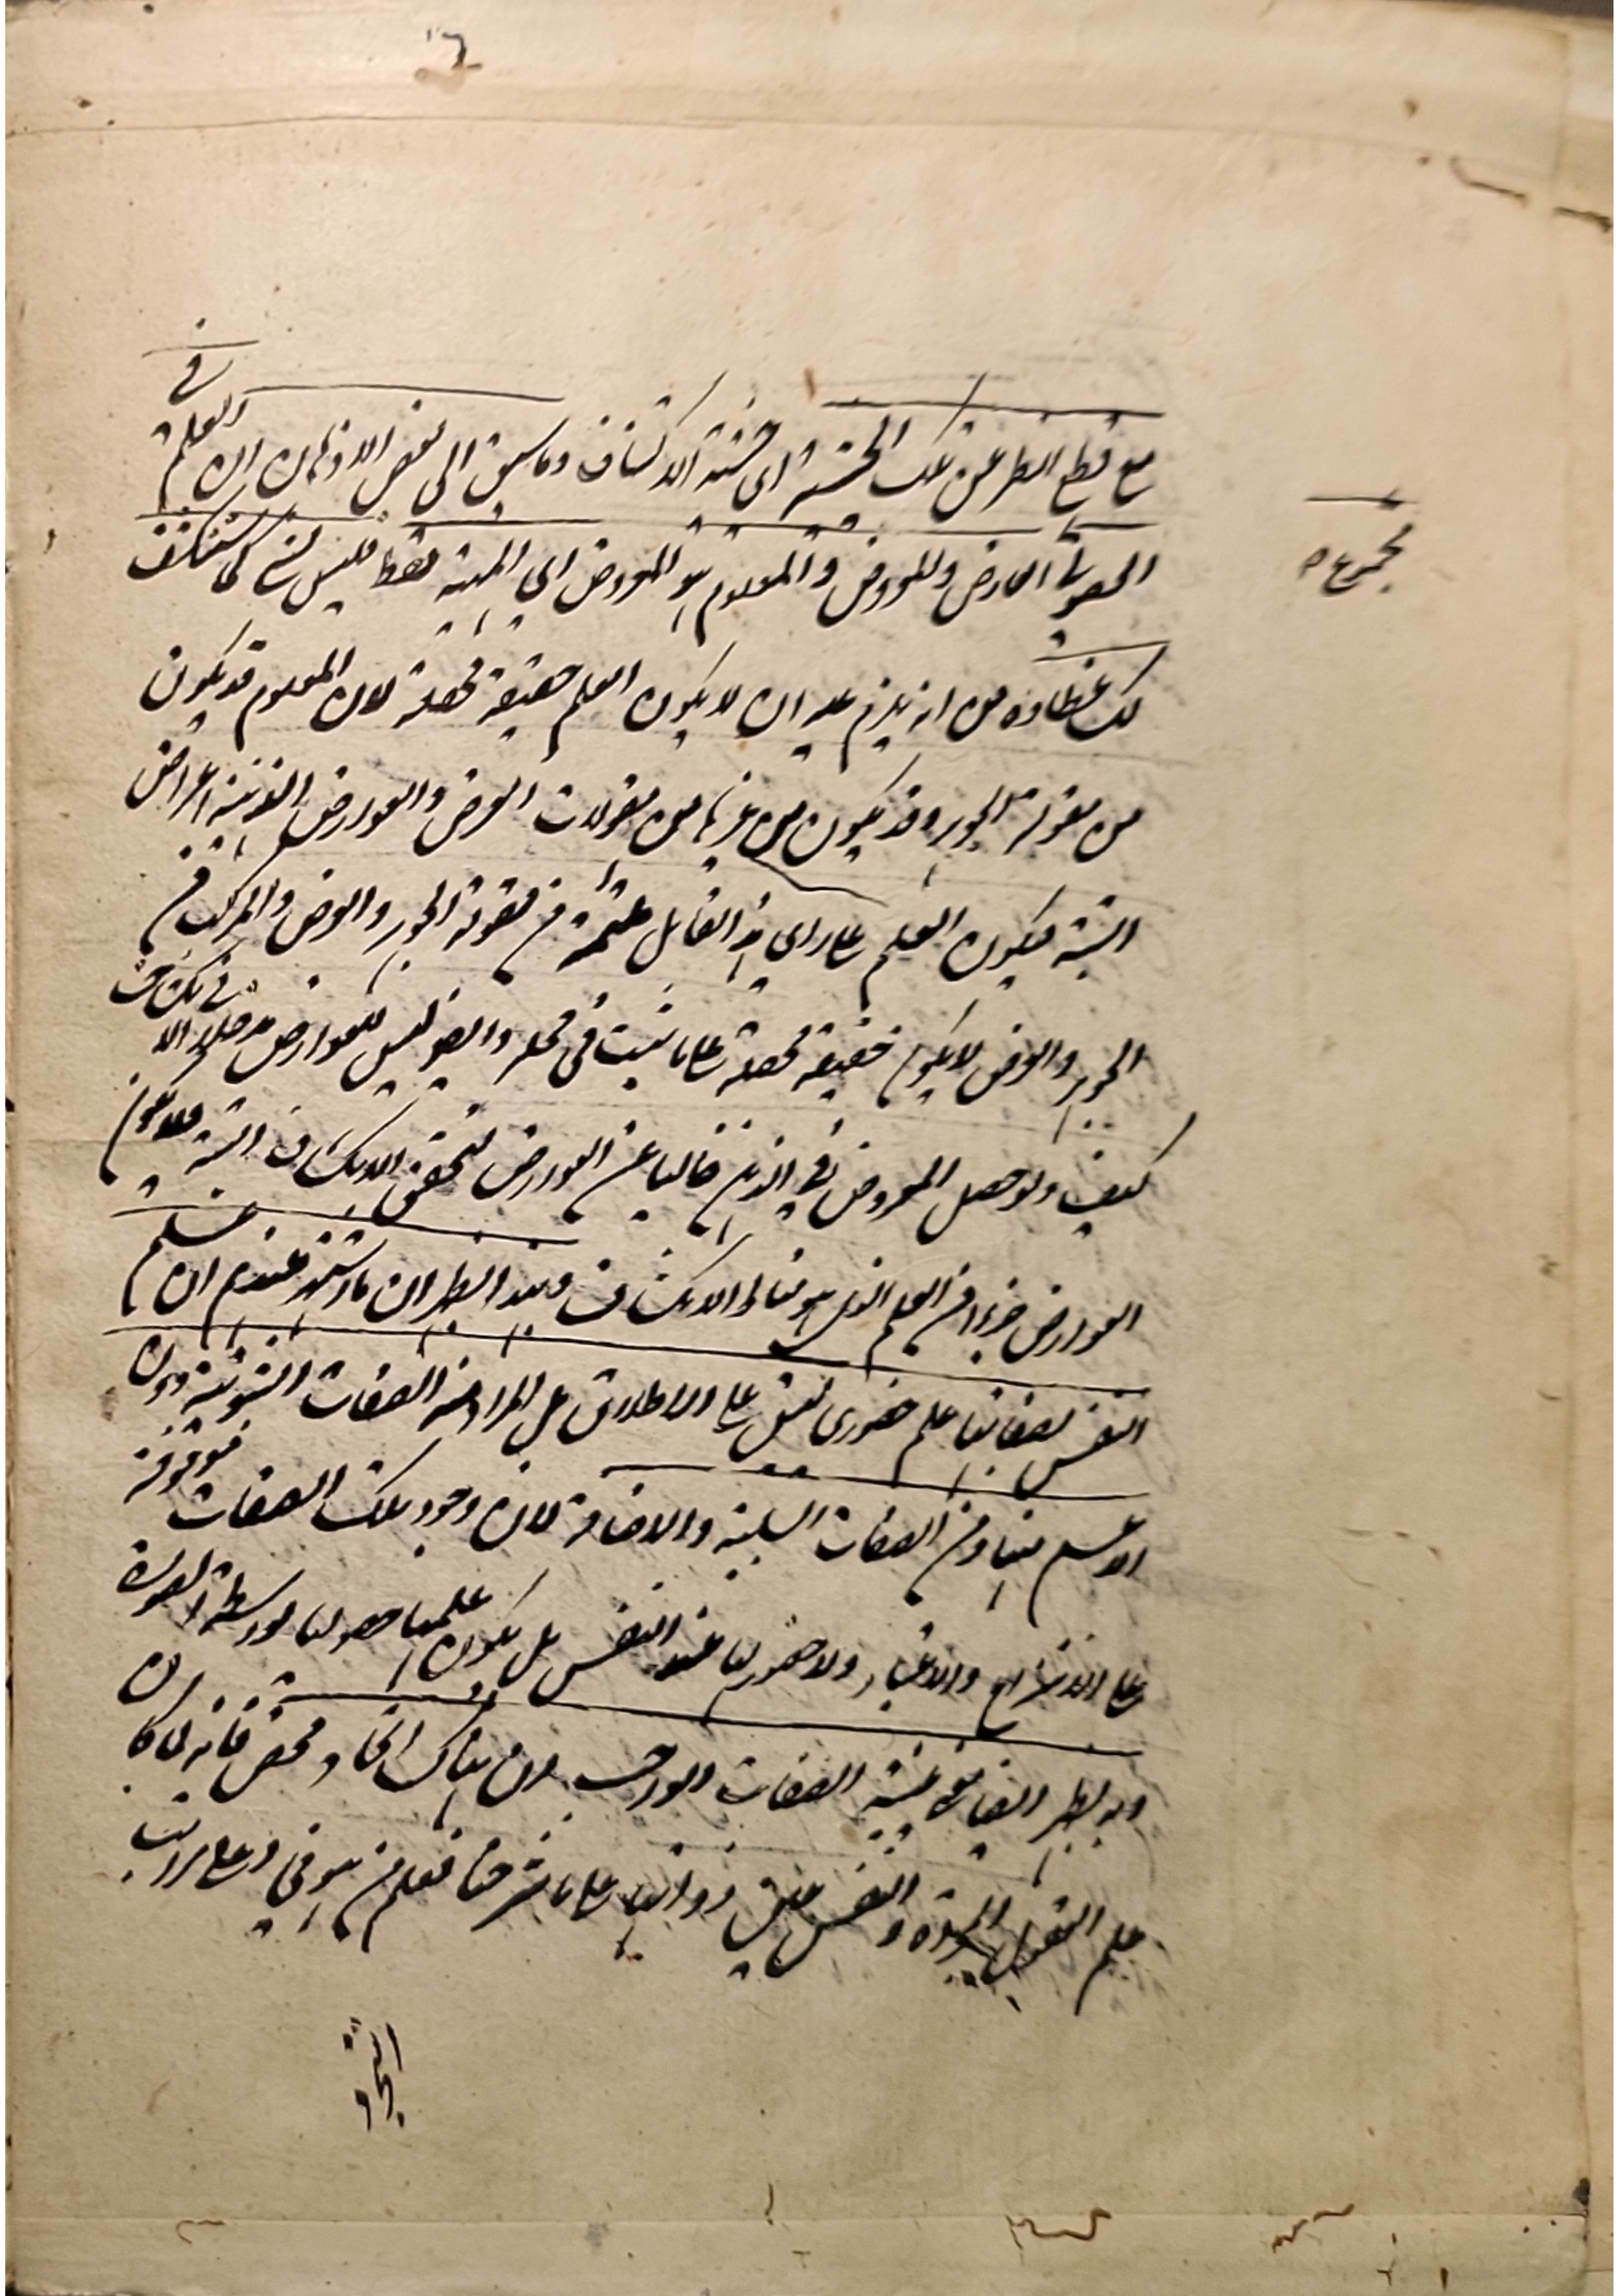 مع قطع النظر عن تلك الحيثية اى حيثية الانكشاف وما سبق الى بعض الاذهان ان العلم فى
الحصولى العارض والمعروض والمعلوم هو المعروض اى المهية فقط فليس بشئ كما سنكشف
مجموع
لك غطاءه من انه يلزم عليه ان لا يكون العلم حقيقة محصلة لان المعلوم قد يكون
من مقولة الجوهر وقد يكون من غيرها من مقولات العرض والعوارض الذهنية اعراض
البتة فيكون العلم على راى هذا القائل ملتئمة من مقولة الجوهر والعرض والمركب من
الجوهر والعرض لا يكون حقيقة محصلة على ما ثبت فى محله وايضا ليس للعوارض مدخلا فى الانكشاف
كيف ولو حصل المعروض فى الذهن خاليا عن العوارض لتحقق الانكشاف البتة فلا يكون
العوارض جزءا من العلم الذى هو مناط الانكشاف وبهذا يظهر ان ما اشتهر عندهم ان علم
النفس بصفاتها علم حضورى ليس على الاطلاق بل المراد منه الصفات الثبوتية دون
الاعم منها ومن الصفات السلبية والاضافة لان وجود تلك الصفات موقوفة
على الانتزاع والاعتبار ولا حضور لها عند النفس بل يكون علمها حصوليا بواسطة الصورة
وبه يظهر ايضا عينية الصفات الواجب لان هناك اتحاد محض فانه لما كان
علم العقول المجردة والنفس عين ذواتها على ما شرحنا فعلم من هو فى اعلى مراتب
التجرد